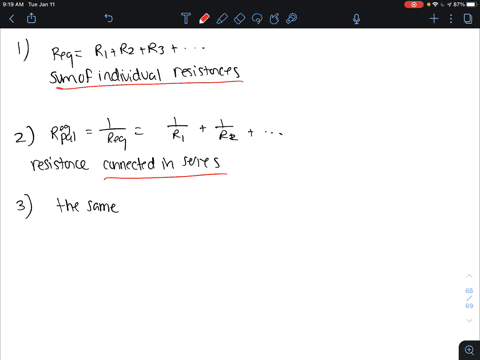 9:19 AM Tue Jan 11
87%
1) Req = R1 + R2 + R3 + ...
sum of individual resistances
2) = 1/Req = 1/R1 + 1/R2 + ...
resistance connected in series
3) the same
68
/
69